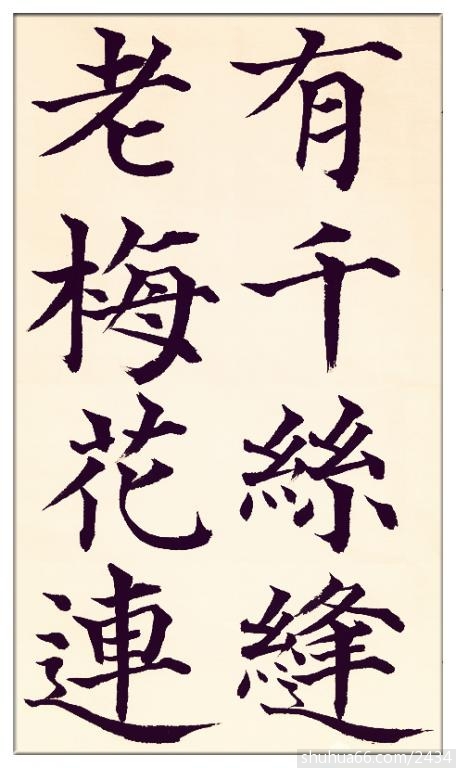 有千絲縫
老梅花連
shuhua66.com/2434